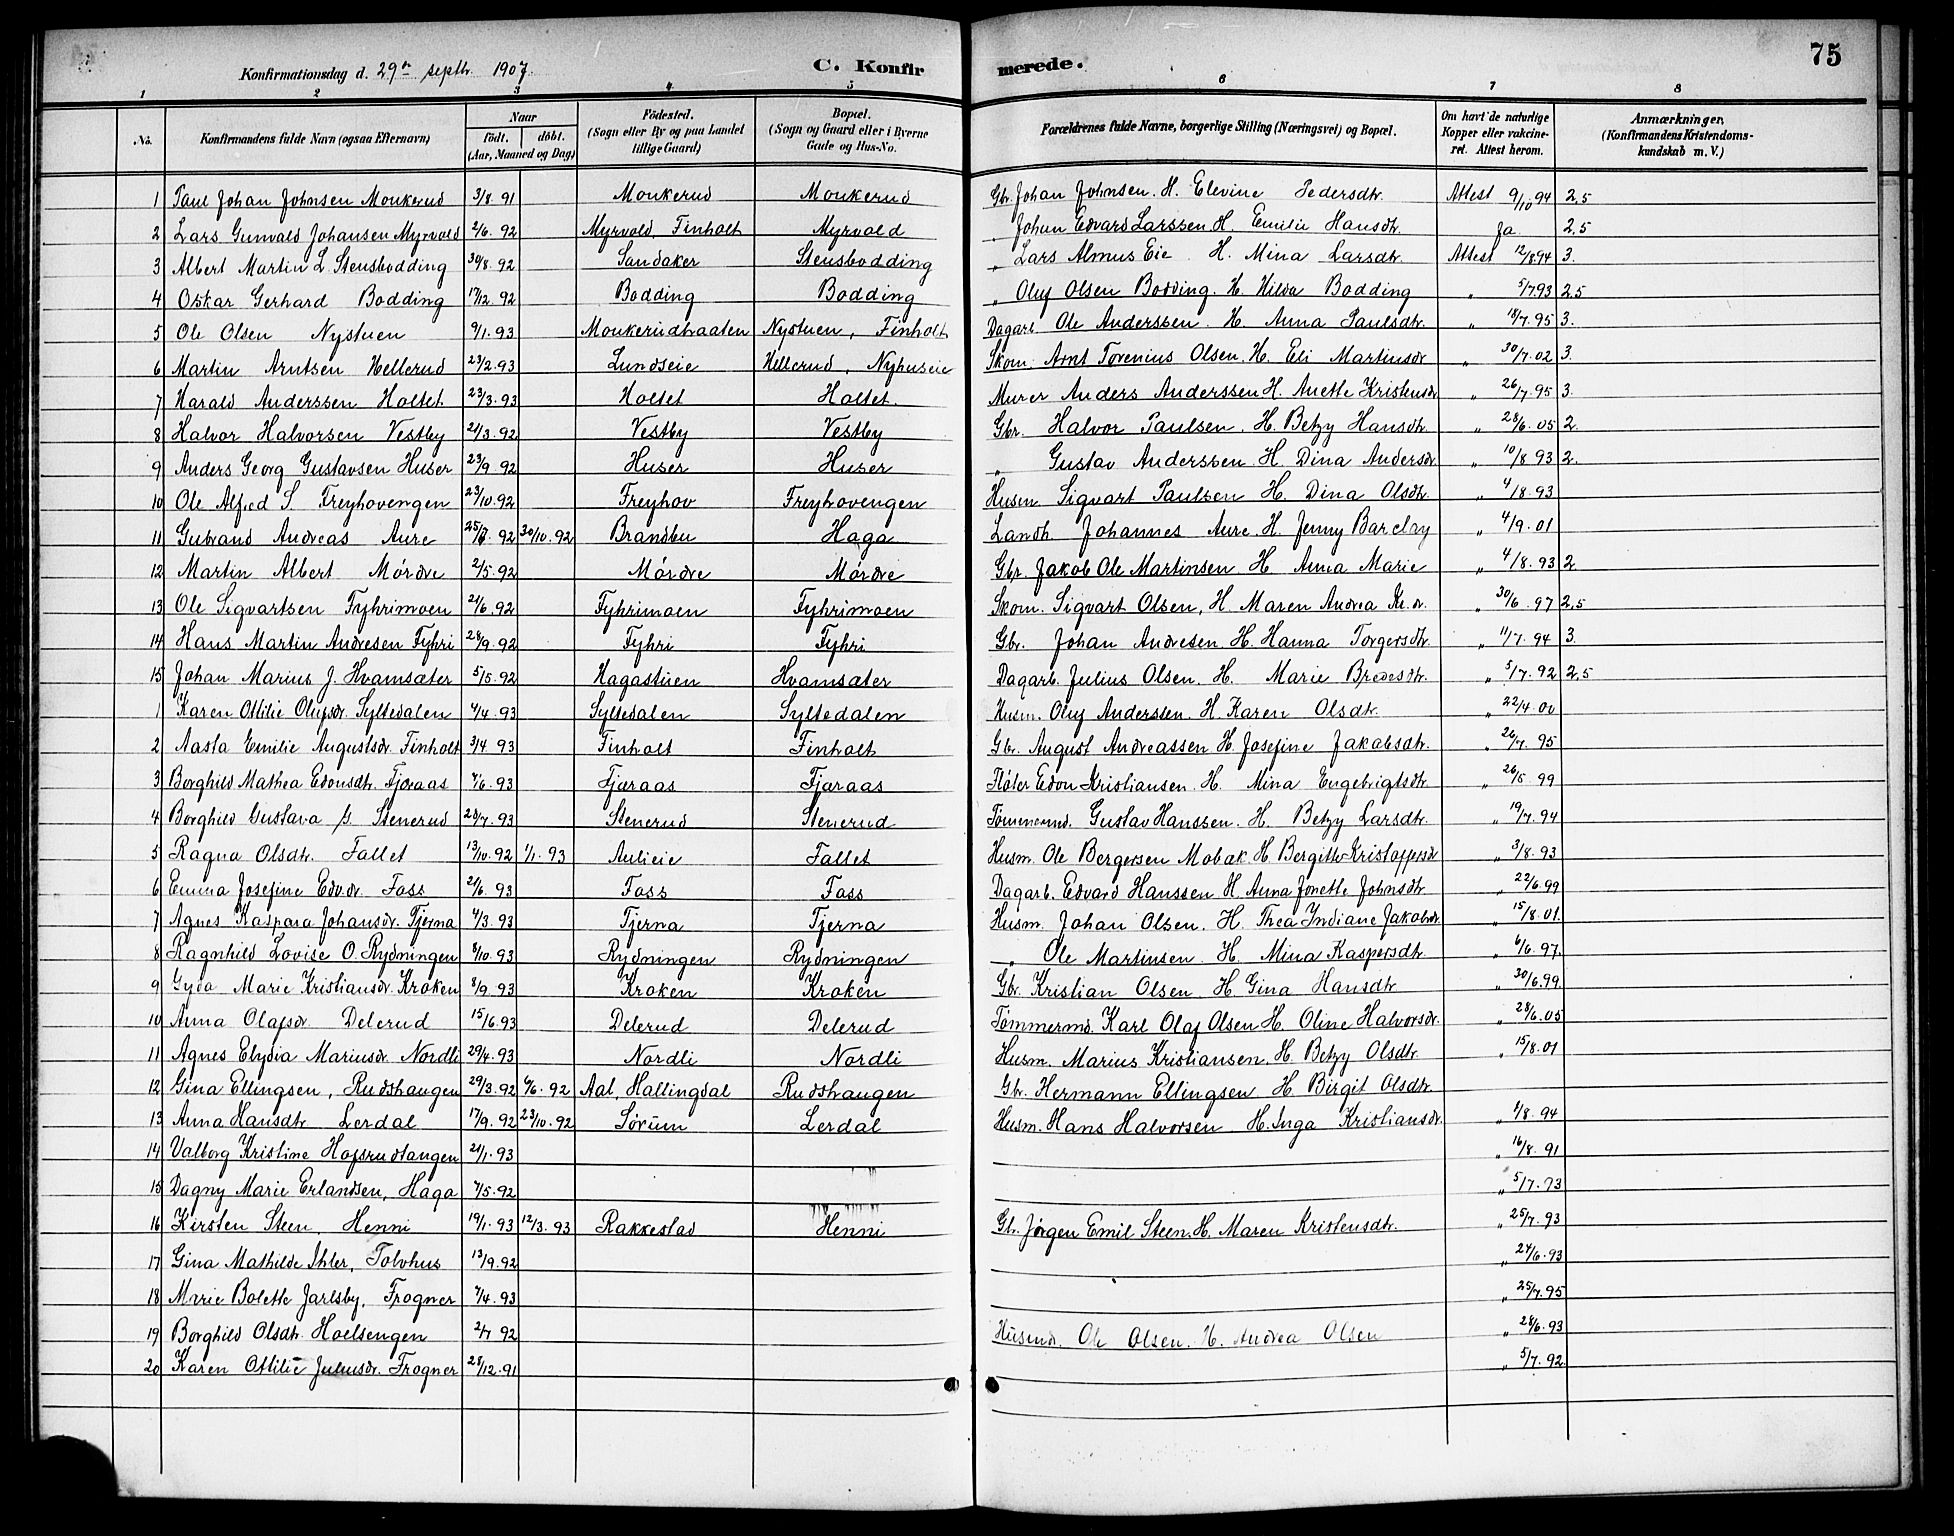 Konfirmationsdag d. 29de septbr. 1907. C. Konfirmerede. 75
1 2 3 4 5 6 7 8
No. Konfirmandens fulde Navn (ogsaa Efternavn) Naar födt. döbt. (Aar, Maaned og Dag) Födested. (Sogn eller By og paa Landet tillige Gaard) Bopæl. (Sogn og Gaard eller i Byerne Gade og Hus-No. Forældrenes fulde Navne, borgerlige Stilling (Næringsvei) og Bopæl. Om havt de naturlige Kopper eller vakcineret. Attest herom. Anmærkninger, (Konfirmandens Kristendomskundskab m. V.)
1 Paul Johan Johnsen Monkerud 3/8 91 Monkerud Monkerud Gbr. Johan Johnsen. H. Elevine Pedersdtr. Attest 9/10 94 2,5
2 Lars Gunvald Johansen Myrvold 2/6. 92 Myrvold, Finholt Myrvold „ Johan Edvard Larssen H. Emilie Hansdtr. Ja 2,5
3 Albert Martin L. Stensbodding 30/8. 92 Sandaker Stensbodding „ Lars Almus Eie H. Mina Larsdtr. Attest 12/8 94 3.
4 Oskar Gerhard Bodding 17/12. 92 Bodding Bodding „ Oluf Olsen Bodding. H. Hilda Bodding „ 5/7 93 2,5
5 Ole Olsen Nystuen 9/1. 93 Monkerudbraaten Nystuen, Finholt Dagarb. Ole Anderssen. H. Anna Paulsdtr. „ 18/7. 95 3.
6 Martin Arntsen Hellerud 23/2. 93 Lundseie Hellerud, Nyhuseie Skom. Arnt Torenius Olsen. H. Eli Martinsdr „ 30/7. 02 3.
7 Harald Anderssen Holtet 23/3. 93 Holtet Holtet. Murer Anders Anderssen H. Anette Kristensdr „ 26/7. 95 3.
8 Halvor Halvorsen Vestby 21/3. 92 Vestby Vestby Gbr. Halvor Paulsen. H. Betzy Hansdtr „ 28/6. 05 2.
9 Anders Georg Gustavsen Huser 23/9. 92 Huser Huser „ Gustav Anderssen. H. Dina Andersdr. „ 10/8 93 2.
10 Ole Alfred S. Freyhovengen 23/10. 92 Freyhov Freyhovengen Husm. Sigvart Paulsen H. Dina Olsdtr. „ 4/8. 93
11 Gubrand Andreas Aure 25/8. 92 30/10. 92 Brandbu Haga Landh. Johannes Aure. H. Jenny Barclay „ 4/9. 01
12 Martin Albert Mórdre 2/5. 92 Mórdre Mórdre Gbr. Jakob Ole Martinsen H. Anna Marie „ 4/8. 93 2
13 Ole Sigvartsen Fyhrimoen 21/6. 92 Fyhrimoen Fyhrimoen Skom. Sigvart Olsen, H. Maren Andrea Kr.dr. „ 30/6. 97 2,5
14 Hans Martin Andresen Fyhri 28/9. 92 Fyhri Fyhri Gbr. Johan Andresen H. Hanna Torgersdtr. „ 11/7. 94 3.
15 Johan Marius J. Hvamsæter 5/5. 92 Hagastuen Hvamsæter Dagarb. Julius Olsen. H. Marie Bredesdtr. „ 5/7. 92 2,5
1 Karen Ottilie Olufsdr. Syltedalen 4/4. 93 Syltedalen Syltedalen Husm. Oluf Anderssen. H. Karen Olsdtr. „ 22/4. 00
2 Aasta Emilie Augustsdr. Finholt 3/4 93 Finholt Finholt Gbr. August Andreassen H. Josefine Jakobsdtr. „ 26/7. 95
3 Borghild Mathea Edonsdtr. Fjæraas 7/6. 93 Fjæraas Fjæraas Flöter Edon Kristiansen. H. Mina Engebrigtsdtr „ 26/5. 99
4 Borghild Gustava G. Stenerud 28/7. 93 Stenerud Stenerud Tömmermd. Gustav Hanssen. H. Betzy Larsdtr. „ 19/7. 94
5 Ragna Olsdtr. Fallet 13/10. 92 1/1. 93 Aulieie Fallet Husm. Ole Bergersen Mobæk. H. Bergitte Kristoffersdr „ 3/8. 93
6 Emma Josefine Edv.dr. Foss 21/6. 93 Foss Foss Dagarb. Edvard Hanssen H. Anna Jonette Johnsdtr „ 22/6. 99
7 Agnes Kaspara Johansdr. Tjerna 4/3. 93 Tjerna Tjerna Husm. Johan Olsen. H. Thea Indiane Jakobsdr „ 15/8. 01.
8 Ragnhild Lovise O. Rydningen 8/10. 93 Rydningen Rydningen „ Ole Martinsen H. Mina Kaspersdtr. „ 6/6. 97.
9 Gyda Marie Kristiansdr. Kroken 8/9. 93 Kroken Kroken Gbr. Kristian Olsen. H. Gina Hansdtr „ 30/6. 99
10 Anna Olafsdr. Delerud 15/6. 93 Delerud Delerud Tömmermd. Karl Olaf Olsen H. Oline Halvorsdr. „ 28/6. 05
11 Agnes Elydia Mariusdr. Nordli 29/4. 93 Nordli Nordli Husm. Marius Kristiansen. H. Betzy Olsdtr. „ 15/8. 01
12 Gina Ellingsen, Rudshaugen 29/3. 92 6/6. 92 Aal, Hallingdal Rudshaugen Gbr. Hermann Ellingsen H. Birgit Olsdtr.
13 Anna Hansdtr Lerdal 17/9. 92 23/10. 92 Sörum Lerdal Husm. Hans Halvorsen H. Inga Kristiansdr. „ 1/8. 94
14 Valborg Kristine Hofsrudtangen 21/1. 93 „ 16/8. 91
15 Dagny Marie Erlandsen, Haga 7/5. 92 „ 5/7. 93
16 Kirsten Steen, Henni 19/1. 93 12/3. 93 Rakkestad Henni Gb. Jörgen Emil Steen. H. Maren Kristensdtr. „ 25/7. 93
17 Gina Mathilde Ihler, Tolvhus 13/9. 92 „ 24/6. 93
18 Marie Bolette Jarlsby, Frogner 7/4. 93 „ 25/7. 95
19 Borghild Olsdtr. Hoelsengen 2/7 92 Husmd. Ole Olsen. H. Andrea Olsen „ 28/6. 93
20 Karen Ottilie Juliusdr. Frogner 28/12. 91 „ 5/7. 92